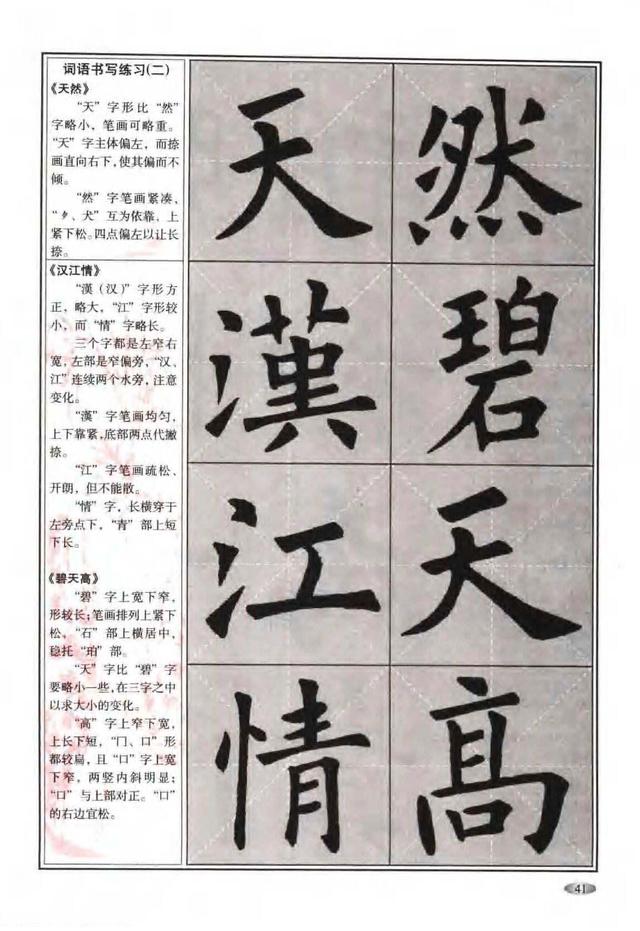 词语书写练习(二)
《天然》
“天”字形比“然”
字略小，笔画可略重。
“天”字主体偏左，而捺
画直向右下，使其偏而不
倾。
“然”字笔画紧凑，
“⺼、犬”互为依靠，上
紧下松。四点偏左以让长
捺。
《汉江情》
“漢（汉）”字形方
正，略大，“江”字形较
小，而“情”字略长。
三个字都是左窄右
宽，左部是窄偏旁，“汉、
江”连续两个水旁，注意
变化。
“漢”字笔画均匀，
上下靠紧，底部两点代撇
捺。
“江”字笔画疏松、
开朗，但不能散。
“情”字，长横穿于
左旁点下，“青”部上短
下长。
《碧天高》
“碧”字上宽下窄，
形较长；笔画排列上紧下
松，“石”部上横居中，
稳托“珀”部。
“天”字比“碧”字
要略小一些，在三字之中
以求大小的变化。
“高”字上窄下宽，
上长下短，“冂、口”形
都较扁，且“口”字上宽
下窄，两竖内斜明显；
“口”与上部对正。“口”
的右边宜松。
天然
漢碧
江天
情高
41